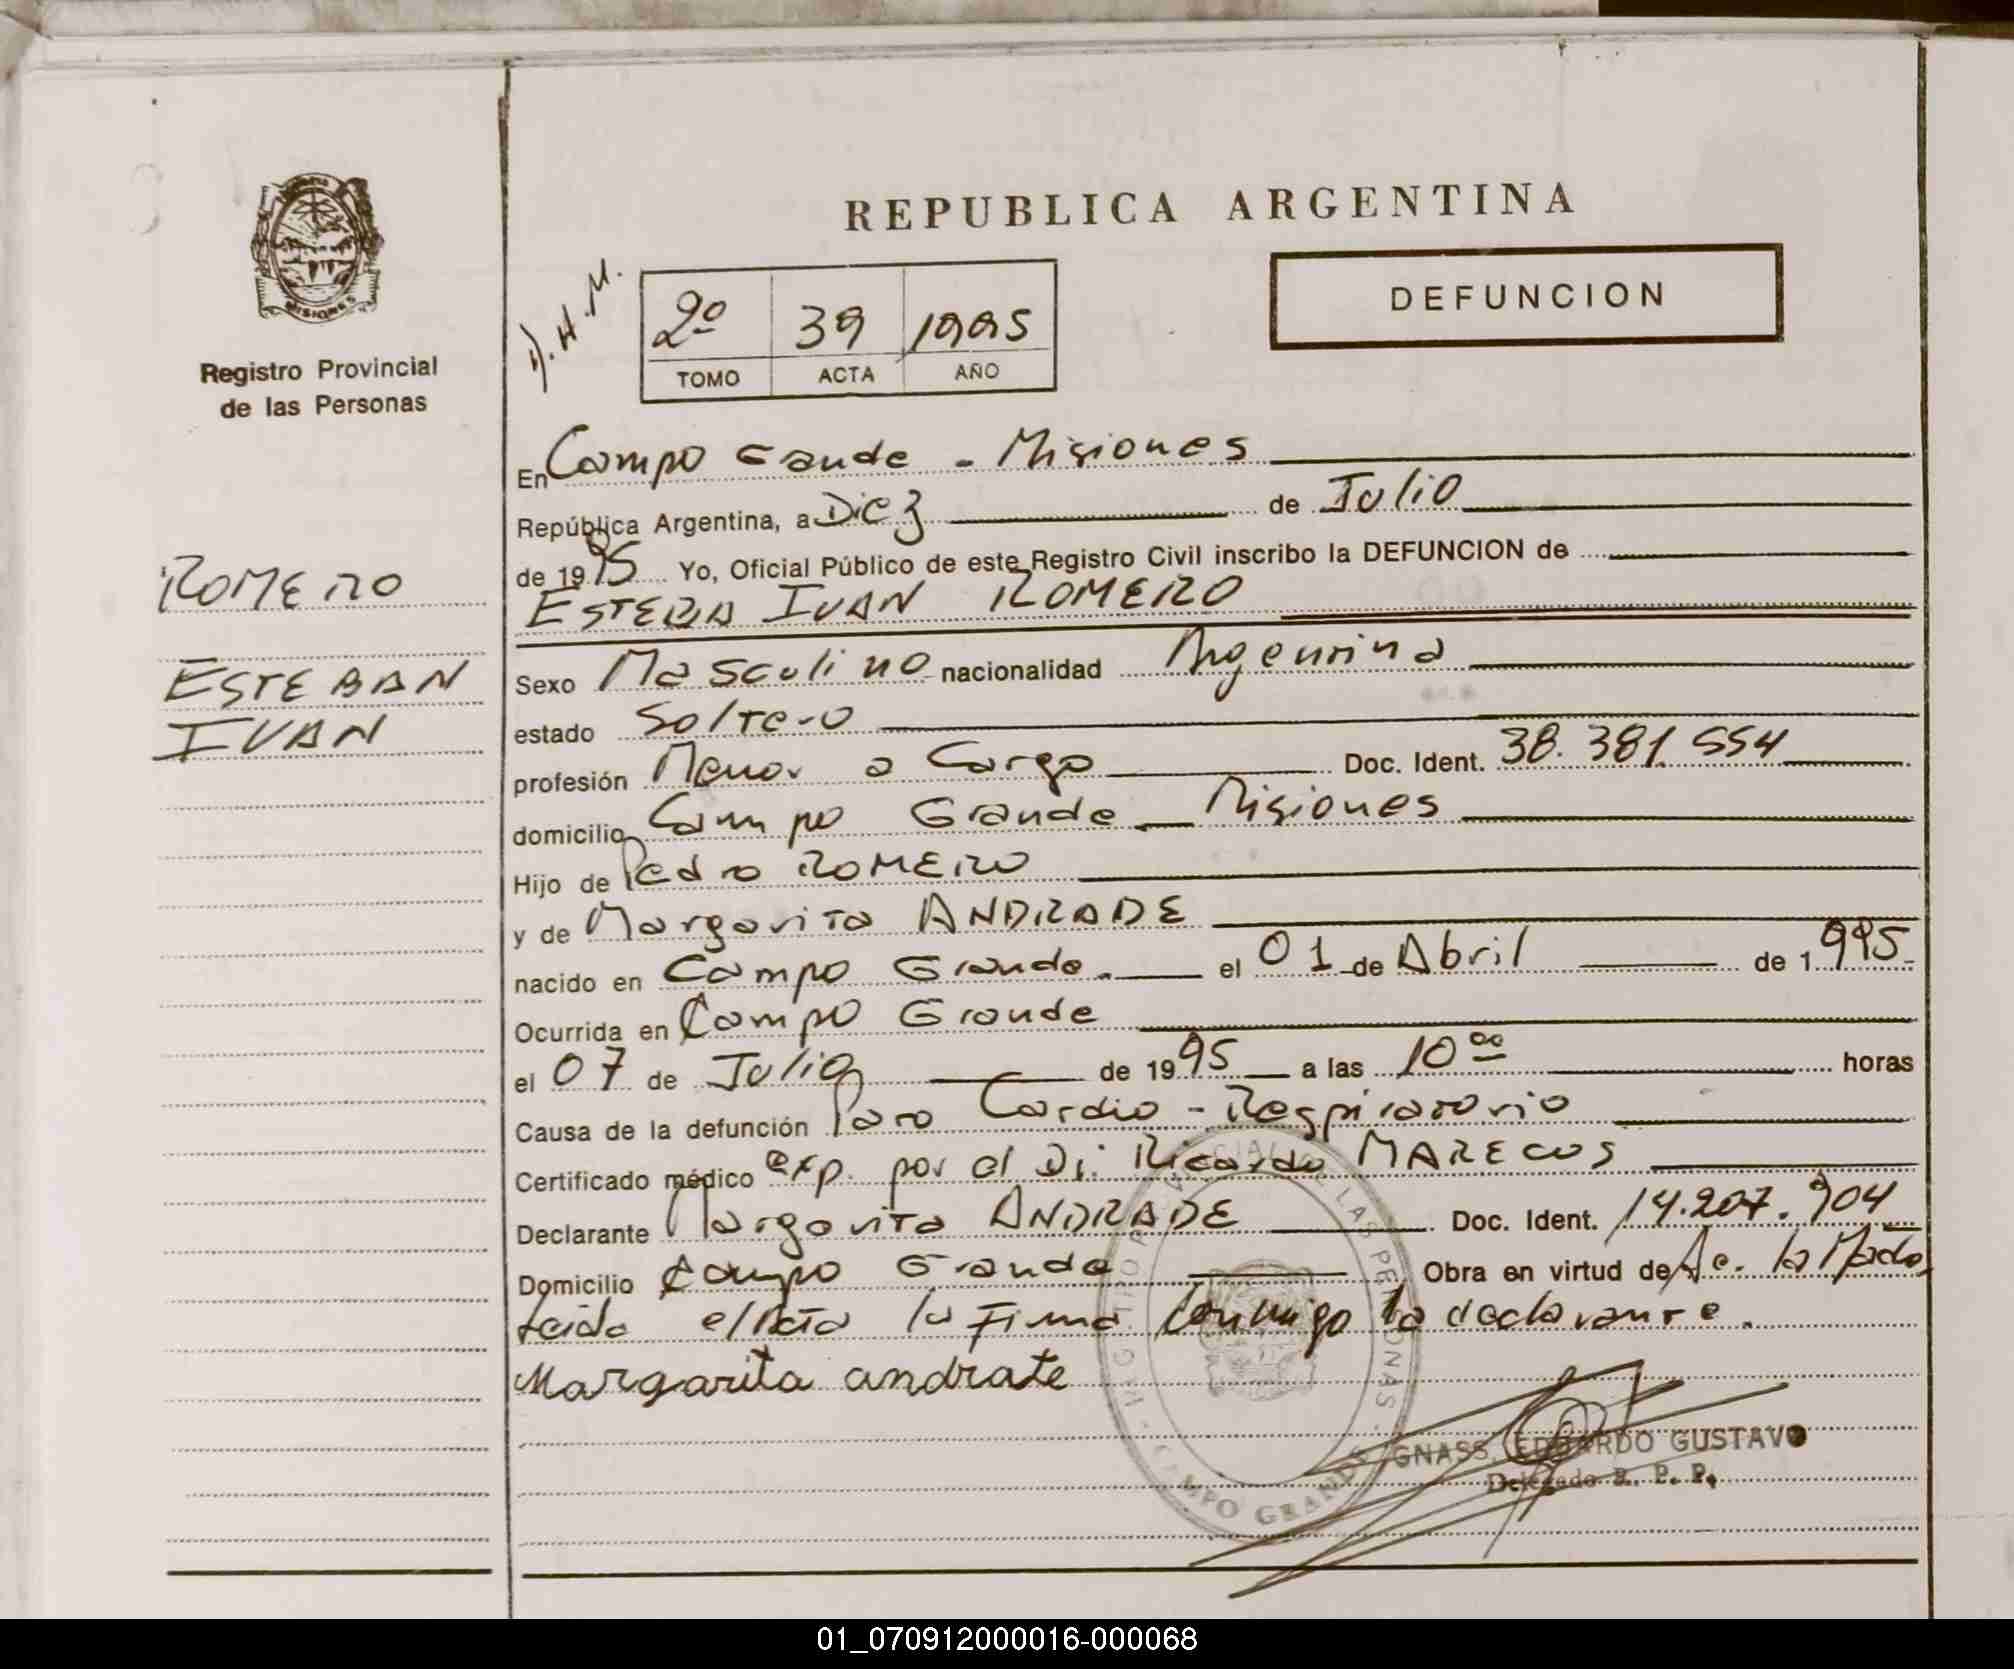 REPUBLICA ARGENTINA
DEFUNCION
MISIONES
Registro Provincial
de las Personas
ROMERO
ESTEBAN
IVAN
2º 39 1995
TOMO ACTA AÑO
En Campo Grande - Misiones
República Argentina, a Diez de Julio
de 1995 Yo, Oficial Público de este Registro Civil inscribo la DEFUNCION de
ESTEBA IVAN ROMERO
Sexo Masculino nacionalidad Argentina
estado Soltero
profesión Menor a Cargo Doc. Ident. 38.381.554
domicilio Campo Grande - Misiones
Hijo de Pedro ROMERO
y de Margarita ANDRADE
nacido en Campo Grande. el 01 de Abril de 1.995.
Ocurrida en Campo Grande
el 07 de Julio de 1995 a las 10 00 horas
Causa de la defunción Paro Cardio-Respiratorio
Certificado médico exp. por el Dr. Ricardo MARECOS
Declarante Margarita ANDRADE Doc. Ident. 14.207.904
Domicilio Campo Grande Obra en virtud de la Madre,
Leida el Acta la Firma Conmigo la declarante.
Margarita andrate
GNASS, EDUARDO GUSTAVO
Delegado R. P. P.
CAMPO GRANDE
01_070912000016-000068